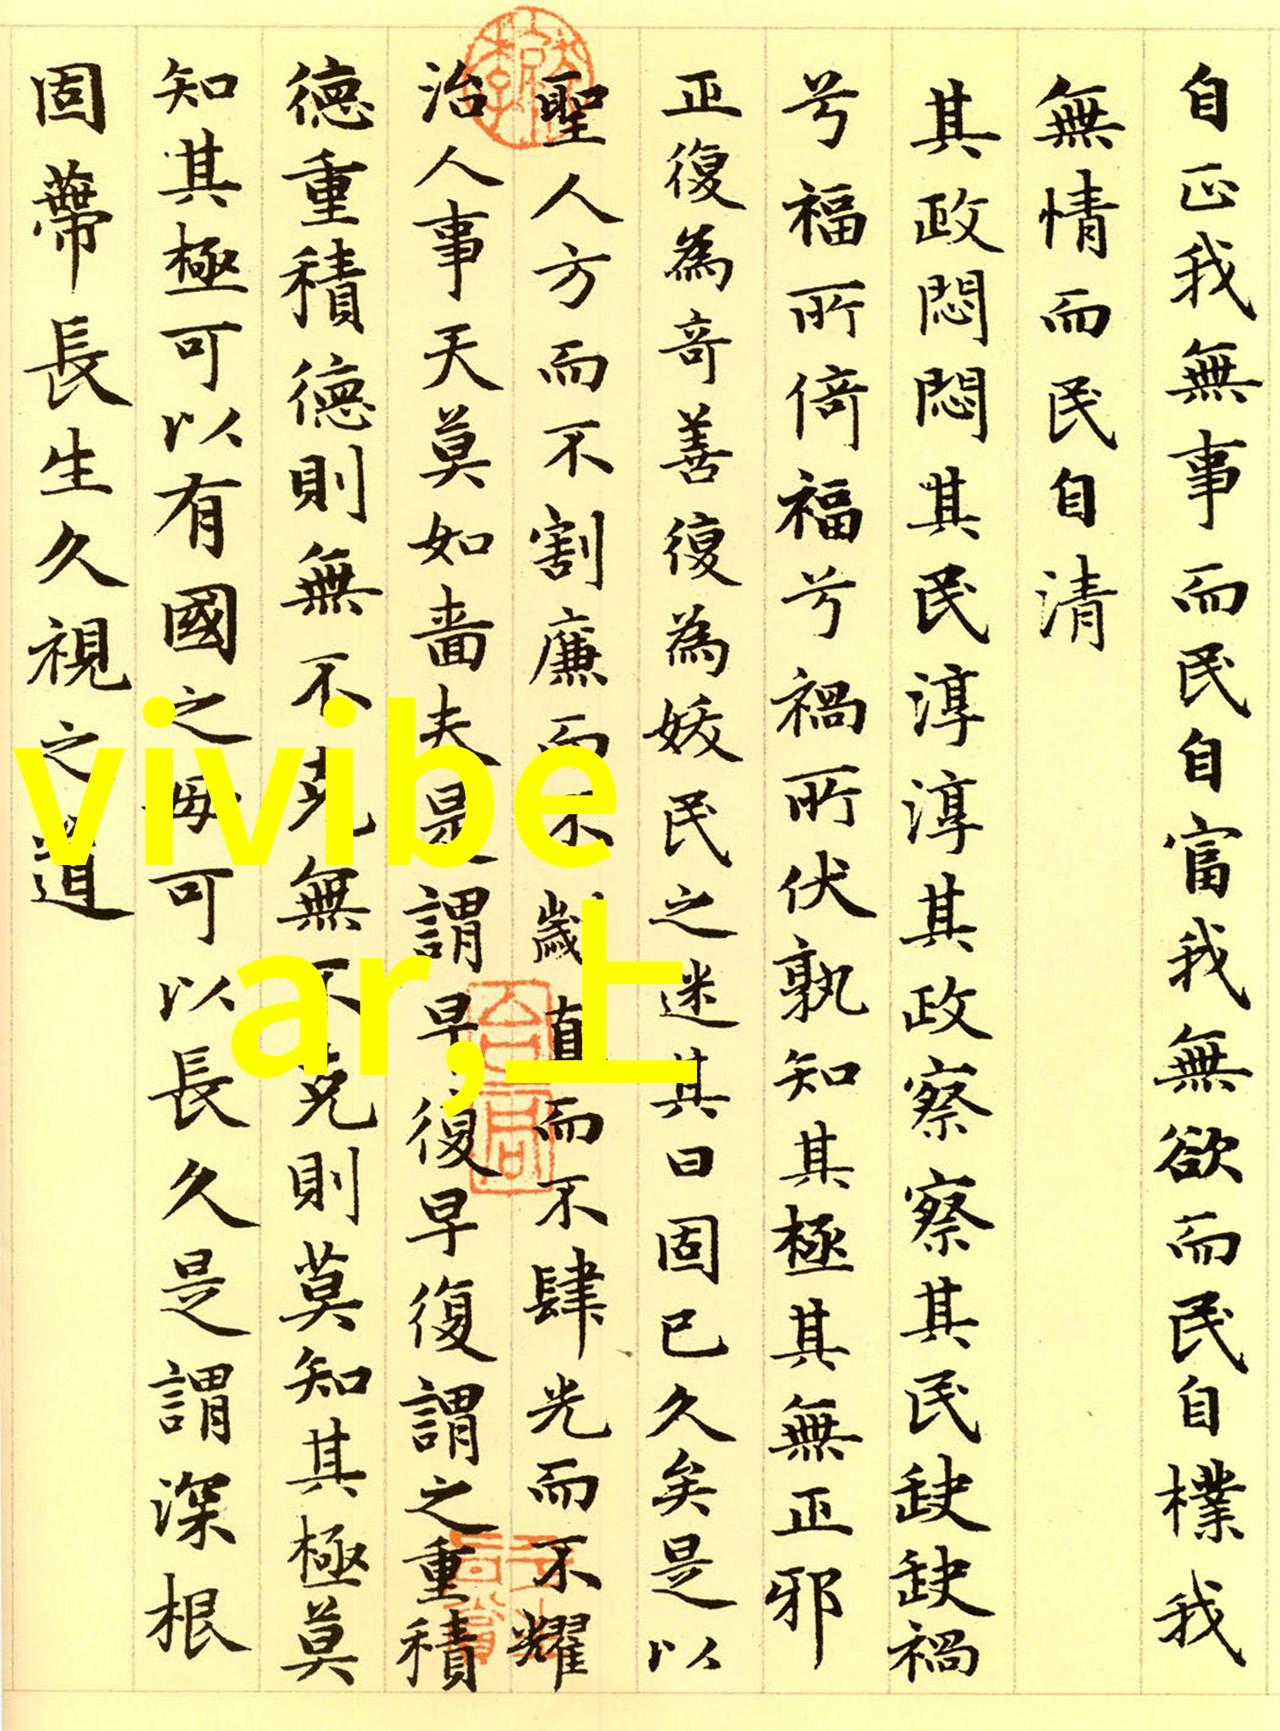 自正我無事而民自富我無欲而民自樸我
無情而民自清
其政悶悶其民淳淳其政察察其民缺缺禍
兮福所倚福兮禍所伏孰知其極其無正邪
正復為奇善復為妖民之迷其日固已久矣是以
聖人方而不割廉而不歲直而不肆光而不耀
治人事天莫如嗇夫是謂早復早復謂之重積
德重積德則無不克無不克則莫知其極莫
知其極可以有國之母可以長久是謂深根
固蔕長生久視之道
vivibe
ar,上